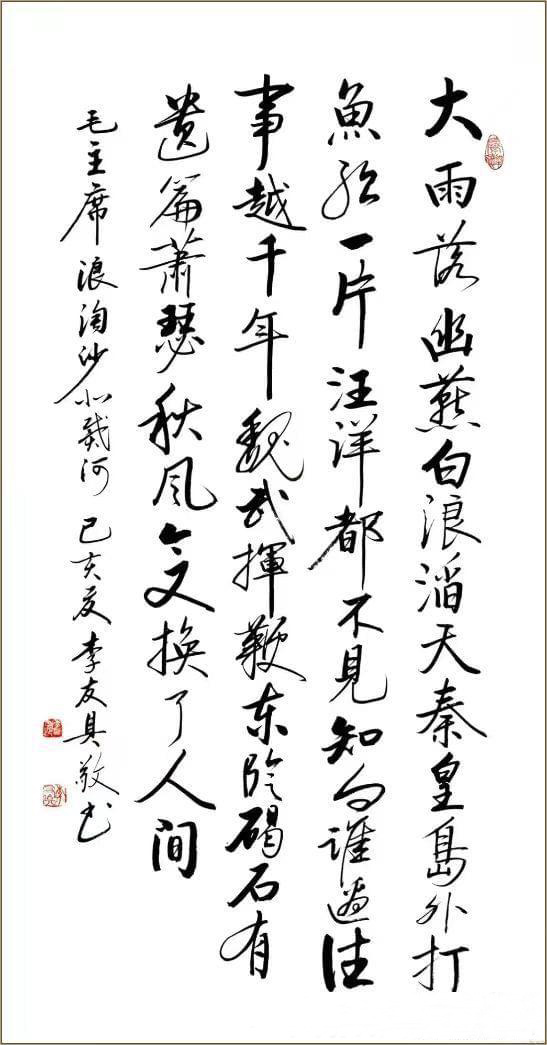 大雨落幽燕白浪滔天秦皇島外打
魚船一片汪洋都不見知向誰邊往
事越千年魏武揮鞭东临碣石有
遗篇蕭瑟秋风今又换了人间
毛主席浪淘沙北戴河 己亥夏李友具敬书